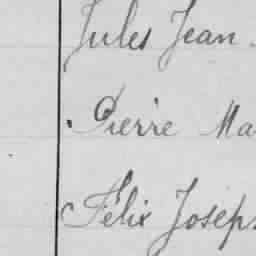 Jules Jean
Pierre Ma
Félix Joseps